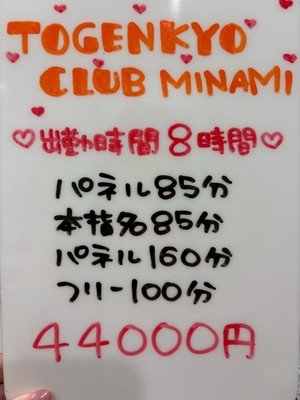 TOGENKYO
CLUB MINAMI
♡出勤時間8時間♡
パネル85分
本指名85分
パネル160分
フリー100分
44000円